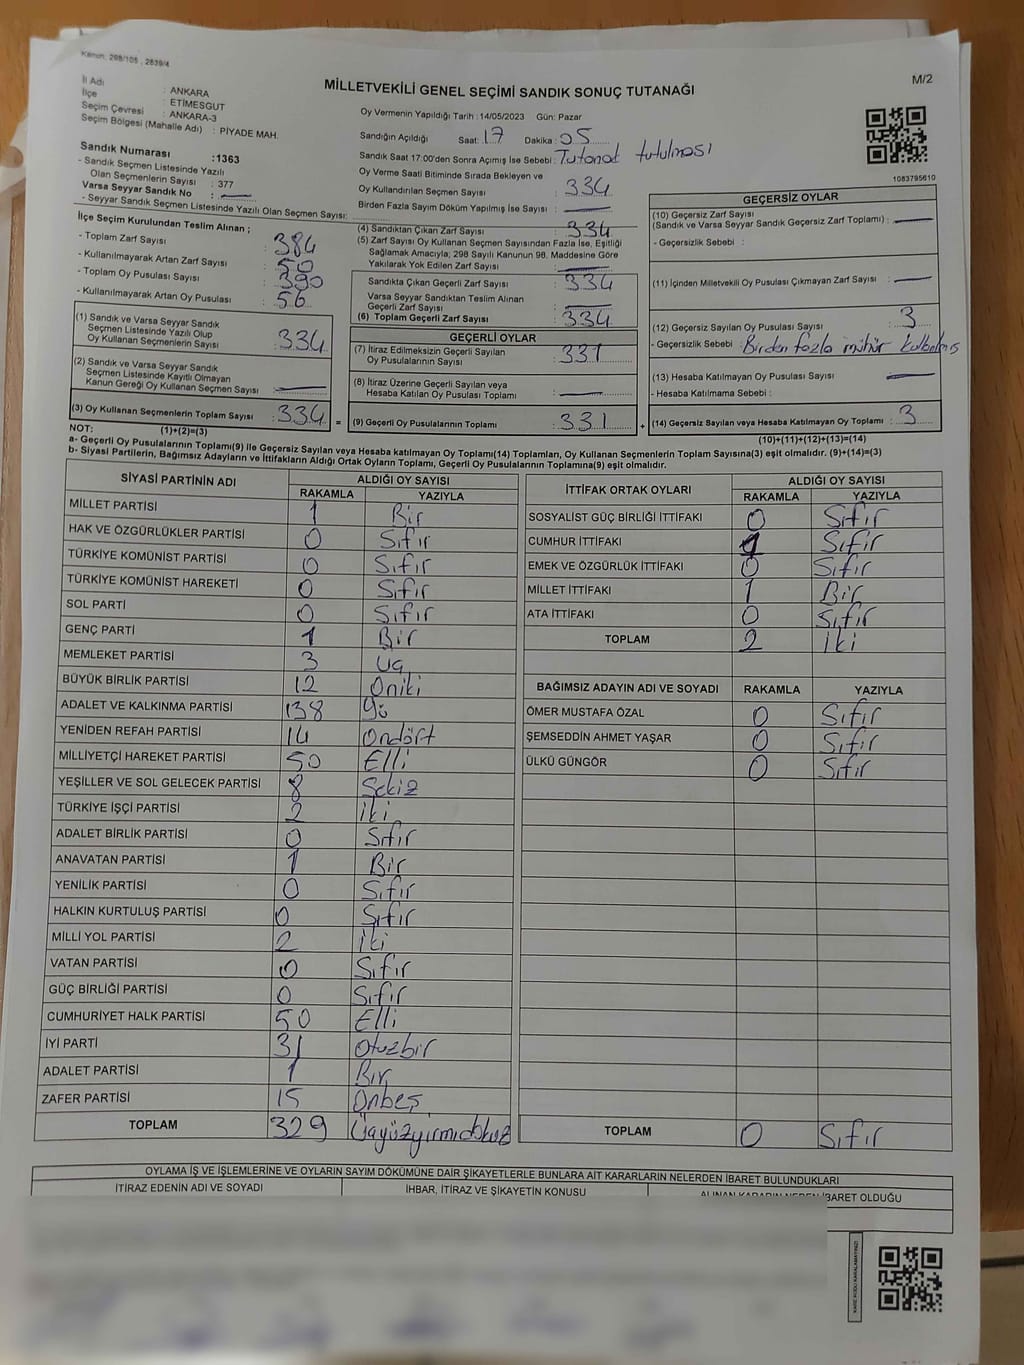 Kanun, 298/105 , 2839/4
M/2
MİLLETVEKİLİ GENEL SEÇİMİ SANDIK SONUÇ TUTANAĞI
İl Adı : ANKARA
İlçe : ETİMESGUT
Seçim Çevresi : ANKARA-3
Seçim Bölgesi (Mahalle Adı) : PİYADE MAH.
Sandık Numarası :1363
- Sandık Seçmen Listesinde Yazılı
Olan Seçmenlerin Sayısı : 377
Varsa Seyyar Sandık No :
- Seyyar Sandık Seçmen Listesinde Yazılı Olan Seçmen Sayısı:
Oy Vermenin Yapıldığı Tarih :14/05/2023 Gün: Pazar
Sandığın Açıldığı Saat: 17 Dakika : 05
Sandık Saat 17:00'den Sonra Açımış İse Sebebi : Tutanak tutulması
Oy Verme Saati Bitiminde Sırada Bekleyen ve
Oy Kullandırılan Seçmen Sayısı : 334
Birden Fazla Sayım Döküm Yapılmış İse Sayısı :
1083795610
İlçe Seçim Kurulundan Teslim Alınan ;
- Toplam Zarf Sayısı : 384
- Kullanılmayarak Artan Zarf Sayısı : 50
- Toplam Oy Pusulası Sayısı : 390
- Kullanılmayarak Artan Oy Pusulası : 56
(1) Sandık ve Varsa Seyyar Sandık
Seçmen Listesinde Yazılı Olup
Oy Kullanan Seçmenlerin Sayısı : 334
(2) Sandık ve Varsa Seyyar Sandık
Seçmen Listesinde Kayıtlı Olmayan
Kanun Gereği Oy Kullanan Seçmen Sayısı :
(3) Oy Kullanan Seçmenlerin Toplam Sayısı : 334 =
(4) Sandıktan Çıkan Zarf Sayısı : 334
(5) Zarf Sayısı Oy Kullanan Seçmen Sayısından Fazla İse, Eşitliği
Sağlamak Amacıyla; 298 Sayılı Kanunun 98. Maddesine Göre
Yakılarak Yok Edilen Zarf Sayısı :
Sandıkta Çıkan Geçerli Zarf Sayısı : 334
Varsa Seyyar Sandıktan Teslim Alınan
Geçerli Zarf Sayısı :
(6) Toplam Geçerli Zarf Sayısı : 334
GEÇERLİ OYLAR
(7) İtiraz Edilmeksizin Geçerli Sayılan
Oy Pusulalarının Sayısı : 331
(8) İtiraz Üzerine Geçerli Sayılan veya
Hesaba Katılan Oy Pusulası Toplamı :
(9) Geçerli Oy Pusulalarının Toplamı : 331 +
GEÇERSİZ OYLAR
(10) Geçersiz Zarf Sayısı
(Sandık ve Varsa Seyyar Sandık Geçersiz Zarf Toplamı) :
- Geçersizlik Sebebi :
(11) İçinden Milletvekili Oy Pusulası Çıkmayan Zarf Sayısı :
(12) Geçersiz Sayılan Oy Pusulası Sayısı : 3
- Geçersizlik Sebebi : Birden fazla mühür kullanılmış
(13) Hesaba Katılmayan Oy Pusulası Sayısı :
- Hesaba Katılmama Sebebi :
(14) Geçersiz Sayılan veya Hesaba Katılmayan Oy Toplamı : 3
NOT: (1)+(2)=(3) (10)+(11)+(12)+(13)=(14)
a- Geçerli Oy Pusulalarının Toplamı(9) ile Geçersiz Sayılan veya Hesaba katılmayan Oy Toplamı(14) Toplamları, Oy Kullanan Seçmenlerin Toplam Sayısına(3) eşit olmalıdır. (9)+(14)=(3)
b- Siyasi Partilerin, Bağımsız Adayların ve İttifakların Aldığı Ortak Oyların Toplamı, Geçerli Oy Pusulalarının Toplamına(9) eşit olmalıdır.
SİYASİ PARTİNİN ADI ALDIĞI OY SAYISI
RAKAMLA YAZIYLA
MİLLET PARTİSİ 1 Bir
HAK VE ÖZGÜRLÜKLER PARTİSİ 0 Sıfır
TÜRKİYE KOMÜNİST PARTİSİ 0 Sıfır
TÜRKİYE KOMÜNİST HAREKETİ 0 Sıfır
SOL PARTİ 0 Sıfır
GENÇ PARTİ 1 Bir
MEMLEKET PARTİSİ 3 Üç
BÜYÜK BİRLİK PARTİSİ 12 Oniki
ADALET VE KALKINMA PARTİSİ 138 Yü
YENİDEN REFAH PARTİSİ 14 Ondört
MİLLİYETÇİ HAREKET PARTİSİ 50 Elli
YEŞİLLER VE SOL GELECEK PARTİSİ 8 Sekiz
TÜRKİYE İŞÇİ PARTİSİ 2 İki
ADALET BİRLİK PARTİSİ 0 Sıfır
ANAVATAN PARTİSİ 1 Bir
YENİLİK PARTİSİ 0 Sıfır
HALKIN KURTULUŞ PARTİSİ 0 Sıfır
MİLLİ YOL PARTİSİ 2 İki
VATAN PARTİSİ 0 Sıfır
GÜÇ BİRLİĞİ PARTİSİ 0 Sıfır
CUMHURİYET HALK PARTİSİ 50 Elli
İYİ PARTİ 31 Otuzbir
ADALET PARTİSİ 1 Bir
ZAFER PARTİSİ 15 Onbeş
TOPLAM 329 Üçyüzyirmidokuz
İTTİFAK ORTAK OYLARI ALDIĞI OY SAYISI
RAKAMLA YAZIYLA
SOSYALİST GÜÇ BİRLİĞİ İTTİFAKI 0 Sıfır
CUMHUR İTTİFAKI 1 Sıfır
EMEK VE ÖZGÜRLÜK İTTİFAKI 0 Sıfır
MİLLET İTTİFAKI 1 Bir
ATA İTTİFAKI 0 Sıfır
TOPLAM 2 İki
BAĞIMSIZ ADAYIN ADI VE SOYADI RAKAMLA YAZIYLA
ÖMER MUSTAFA ÖZAL 0 Sıfır
ŞEMSEDDİN AHMET YAŞAR 0 Sıfır
ÜLKÜ GÜNGÖR 0 Sıfır
TOPLAM 0 Sıfır
OYLAMA İŞ VE İŞLEMLERİNE VE OYLARIN SAYIM DÖKÜMÜNE DAİR ŞİKAYETLERLE BUNLARA AİT KARARLARIN NELERDEN İBARET BULUNDUKLARI
İTİRAZ EDENİN ADI VE SOYADI İHBAR, İTİRAZ VE ŞİKAYETİN KONUSU ALINAN KARARIN NEDEN İBARET OLDUĞU
KARE KODU KARALAMAYINIZ!